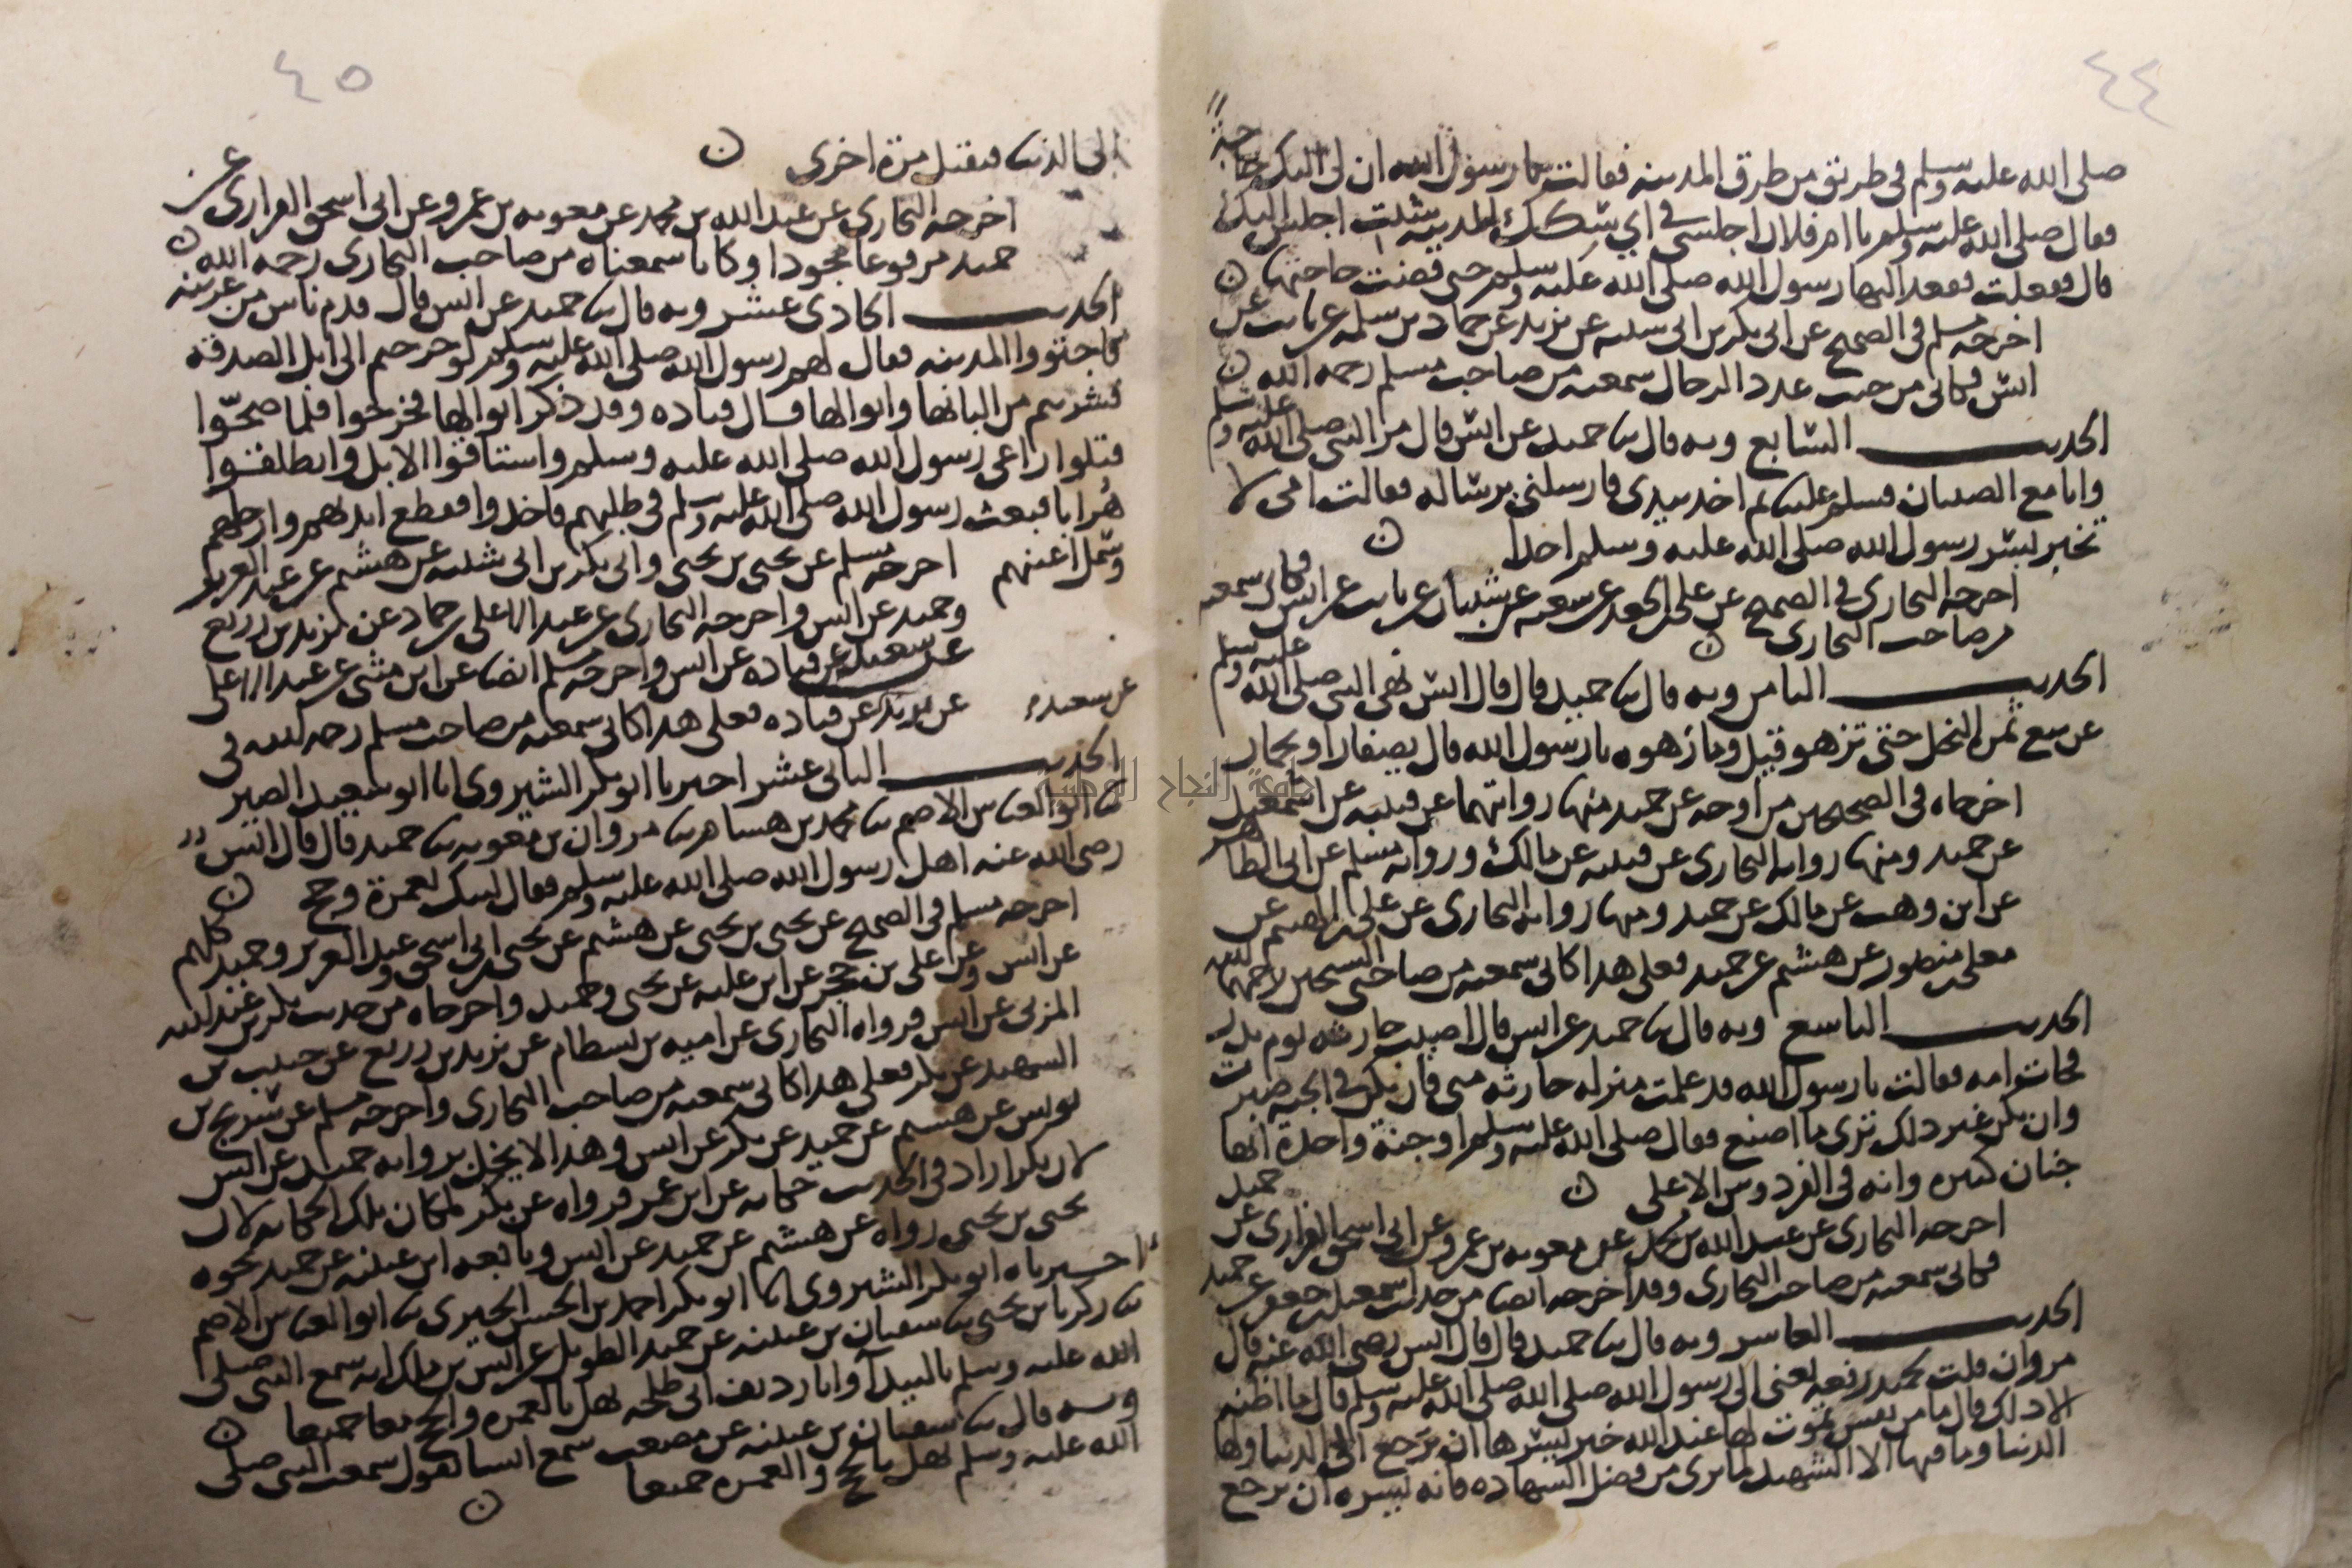 ٤٤
صلى الله عليه وسلم في طريق من طرق المدينه فقالت يا رسول الله ان لي اليك حاجة
فقال صلى الله عليه وسلم يا ام فلان اجلسي في اي سكك المدينه شئت اجلس اليك
قال ففعلت فقعد اليها رسول الله صلى الله عليه وسلم حتى قضت حاجتها ن
اخرجه مسلم في الصحيح عن ابي بكر بن ابي شيبه عن يزيد عن حماد بن سلمه عن ثابت عن
انس فكاني من حيث عدد الرجال سمعته من صاحب مسلم رحمه الله ن
الحديث السابع وبه قال ثنا حميد عن انس قال مر النبي صلى الله عليه وسلم
وانا مع الصبيان فسلم علينا ثم اخذ بيدي فارسلني برساله فقالت امي لا
تخبر بسر رسول الله صلى الله عليه وسلم احدا ن
اخرجه البخاري في الصحيح عن علي بن الجعد عن شعبه عن سيار عن ثابت عن انس فكاني سمعته
من صاحب البخاري ن
الحديث الثامن وبه قال ثنا حميد قال قال انس نهى النبي صلى الله عليه وسلم
عن بيع ثمر النخل حتى تزهو قيل وما زهوه يا رسول الله قال يصفار او يحمار
اخرجاه في الصحيحين من اوجه عن حميد منها روايتهما عن قتيبه عن اسمعيل
عن حميد ومنها روايه البخاري عن قتيبه عن مالك وروايه مسلم عن ابي الطاهر
عن ابن وهب عن مالك عن حميد ومنها روايه البخاري عن علي بن الهيثم عن
معلى بن منصور عن هشيم عن حميد فعلى هذا كاني سمعته من صاحبي الشيخين رحمهما الله
الحديث التاسع وبه قال ثنا حميد عن انس قال اصيب حارثه يوم بدر
فجات امه فقالت يا رسول الله قد علمت منزله حارثه مني فان يكن في الجنه صبرت
وان يكن غير ذلك ترى ما اصنع فقال صلى الله عليه وسلم او جنة واحدة انها
جنان كثيره وانه في الفردوس الاعلى ن
اخرجه البخاري عن عبد الله بن محمد عن معويه بن عمرو عن ابي اسحق الفزاري عن حميد
فكاني سمعته من صاحب البخاري وقد اخرجه ايضا من حديث اسمعيل بن جعفر عن حميد
الحديث العاشر وبه قال ثنا حميد قال قال انس رضي الله عنه قال
مروان قلت لحميد رفعه يعني الى رسول الله صلى الله صلى الله عليه وسلم قال ما اظنه
الا ذلك قال ما من نفس تموت لها عند الله خير يسرها ان ترجع الى الدنيا ولها
الدنيا وما فيها الا الشهيد لما يرى من فضل الشهاده فانه يسره ان يرجع
٤٥
الى الدنيا فيقتل مرة اخرى ن
اخرجه البخاري عن عبد الله بن محمد عن معويه بن عمرو عن ابي اسحق الفزاري عن
حميد مرفوعا مجودا وكانا سمعناه من صاحب البخاري رحمه الله ن
الحديث الحادي عشر وبه قال ثنا حميد عن انس قال قدم ناس من عرينه
فاجتووا المدينه فقال لهم رسول الله صلى الله عليه وسلم لو خرجتم الى ابل الصدقه
فشربتم من البانها وابوالها قال قتاده وقد ذكر ابوالها فخرجوا فلما صحوا
قتلوا راعي رسول الله صلى الله عليه وسلم واستاقوا الابل وانطلقوا
هرابا فبعث رسول الله صلى الله عليه وسلم في طلبهم فاخذوا فقطع ايديهم وارجلهم
وسمل اعينهم اخرجه مسلم عن يحيى بن يحيى وابي بكر بن ابي شيبه عن هشيم عن عبد العزيز
وحميد عن انس واخرجه البخاري عن عبد الاعلى بن حماد عن يزيد بن زريع
عن سعيد عن قتاده عن انس واخرجه مسلم ايضا عن ابن مثنى عن عبد الاعلى
عن سعيد عن يزيد عن قتاده فعلى هذا كاني سمعته من صاحب مسلم رحمه الله في
الحديث الثاني عشر اخبرنا ابو بكر الشيروي انا ابو سعيد الصيرفي
ثنا ابو العباس الاصم ثنا محمد بن هشام ثنا مروان بن معويه ثنا حميد قال قال انس
رضي الله عنه اهل رسول الله صلى الله عليه وسلم فقال لبيك بعمرة وحج ن
اخرجه مسلم في الصحيح عن يحيى بن يحيى عن هشيم عن يحيى بن ابي اسحق وعبد العزيز وحميد كلهم
عن انس وعن علي بن حجر عن ابن عليه عن يحيى وحميد واخرجاه من حديث بكر بن عبد الله
المزني عن انس فرواه البخاري عن اميه بن بسطام عن يزيد بن زريع عن حبيب بن
الشهيد عن بكر فعلى هذا كاني سمعته من صاحب البخاري واخرجه مسلم عن سريج بن
يونس عن هشيم عن حميد عن بكر عن انس وهذا لا يخل بروايه حميد عن انس
لان بكرا زاد في الحديث حكايه عن ابن عمر فرواه عن بكر لمكان تلك الحكايه لان
يحيى بن يحيى رواه عن هشيم عن حميد عن انس وتابعه ابن عيينه عن حميد نحوه
اخبرناه ابو بكر الشيروي انا ابو بكر احمد بن الحسن الحيري ثنا ابو العباس الاصم
ثنا زكريا بن يحيى ثنا سفيان بن عيينه عن حميد الطويل عن انس بن ملك انه سمع النبي صلى
الله عليه وسلم بالبيدآ وانا رديف ابي طلحه يهل بالعمره والحج معا جميعا ن
وبه قال ثنا سفيان بن عيينه عن مصعب سمع انسا يقول سمعت النبي صلى
الله عليه وسلم يهل بالحج والعمره جميعا ن
جامعة النجاح الوطنية